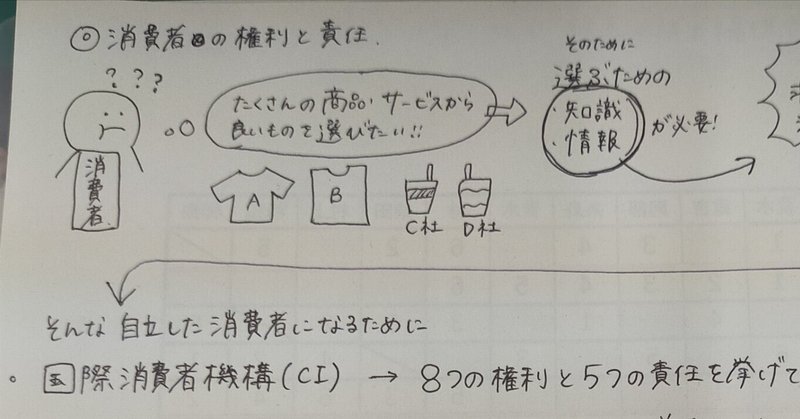 ◎消費者の権利と責任.
???
消費者
たくさんの商品・サービスから
良いものを選びたい!!
そのために
選ぶための
・知識
・情報
が必要!
A
B
C社
D社
そんな自立した消費者になるために
国際消費者機構(CI) → 8つの権利と5つの責任を挙げて